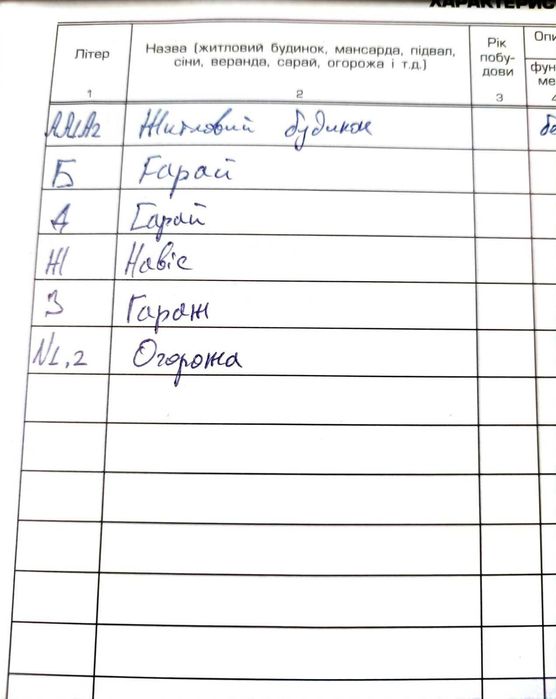 ХАРАКТЕРИС
Літер
Назва (житловий будинок, мансарда, підвал,
сіни, веранда, сарай, огорожа і т.д.)
Рік
побу-
дови
Опи
фун
ме
1 2 3 4
АА1А2 Житловий будинок бе
Б Сарай
Д Сарай
Ж Навіс
З Гараж
N1,2 Огорожа